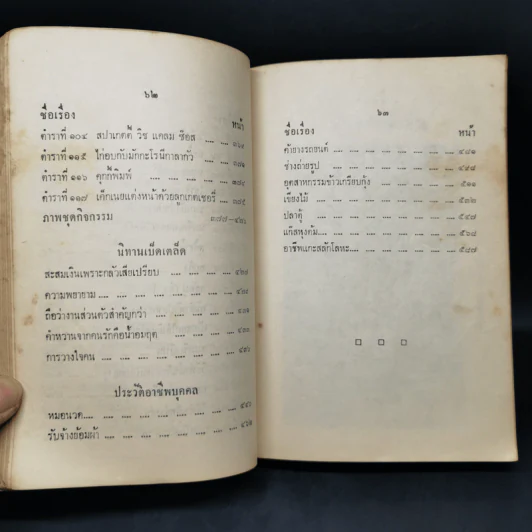 ๖๒
ชื่อเรื่อง หน้า
ตำราที่ ๑๐๔ สปาเกตตี้ วิช แคลม ซ๊อส .... ....
ตำราที่ ๑๑๕ ไก่อบกับมักกะโรนีกาลาก้ว .... ....
ตำราที่ ๑๑๖ คุกกี้พิมพ์ .... .... .... ....
ตำราที่ ๑๑๗ เค็กเนยแต่งหน้าด้วยลูกเกดเชอรี่ ....
ภาพชุดกิจกรรม
นิทานเบ็ดเตล็ด
สะสมเงินเพราะกลัวเสียเปรียบ .... .... .... ....
ความพยายาม .... .... .... .... .... ....
ถือว่างานส่วนตัวสำคัญกว่า .... .... .... ....
คำหวานจากคนรักคือน้ำอมฤต .... .... ....
การวางใจคน .... .... .... .... .... ....
ประวัติอาชีพบุคคล
หมอนวด.... .... .... .... .... .... ....
รับจ้างย้อมผ้า .... .... .... .... .... ....
๖๓
ชื่อเรื่อง หน้า
ค้ายางรถยนต์ .... .... .... .... .... .... ๔๘๑
ช่างถ่ายรูป .... .... .... .... .... .... ๔๙๘
อุตสาหกรรมข้าวเกรียบกุ้ง .... .... .... .... ๕๑๑
เขียงไม้ .... .... .... .... .... .... ๕๒๒
ปลาดุ๊ .... .... .... .... .... .... ๕๔๗
แก๊สหุงต้ม .... .... .... .... .... .... ๕๖๘
อาชีพแกะสลักโลหะ .... .... .... .... .... ๕๘๗